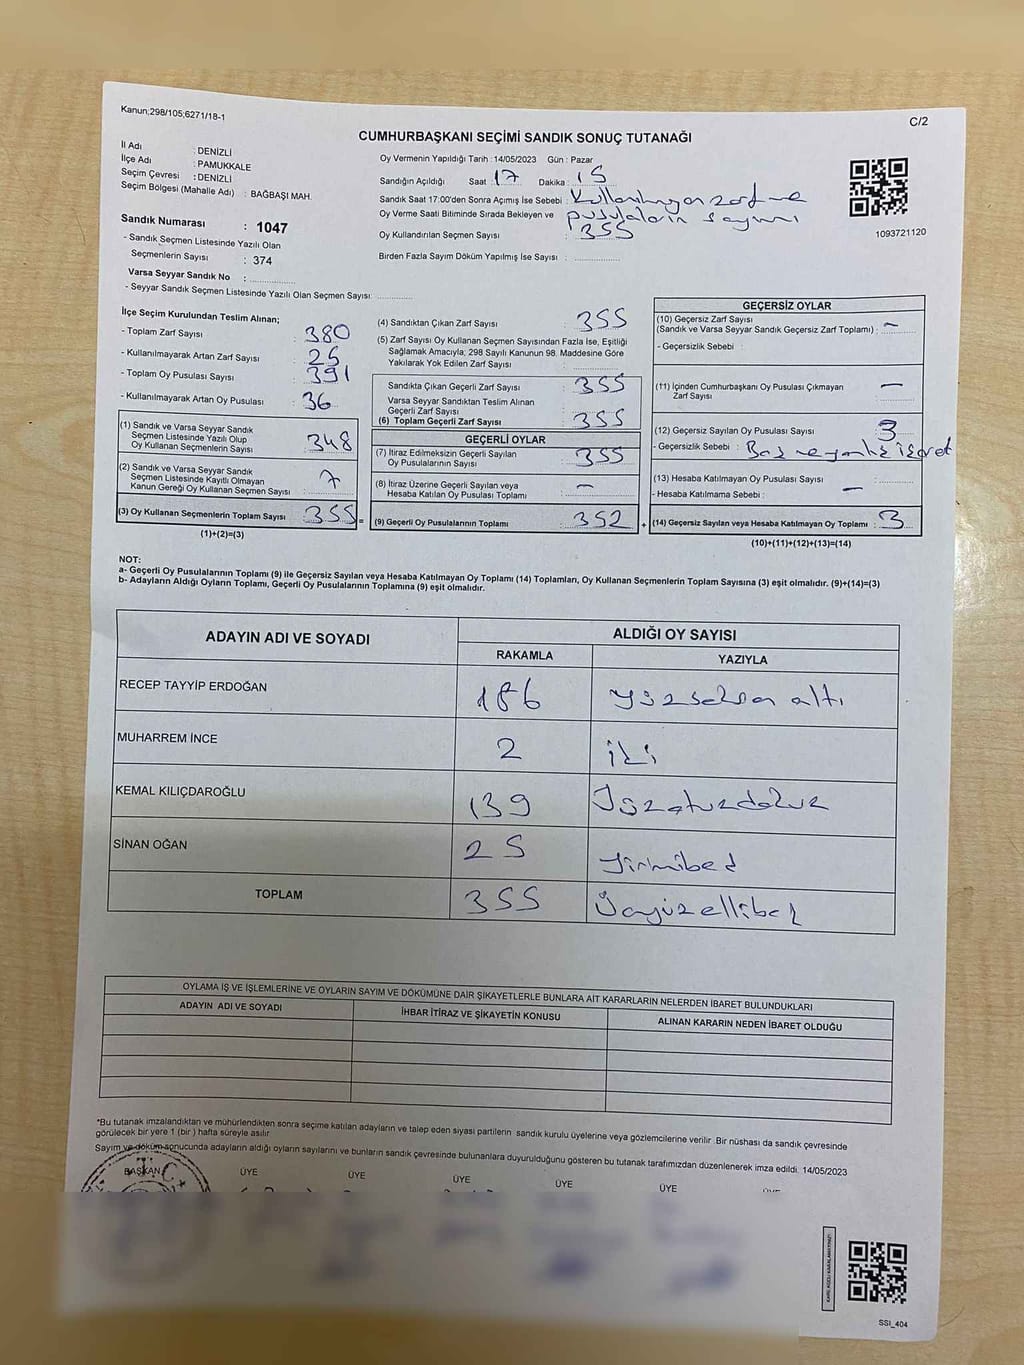 Kanun;298/105;6271/18-1
C/2
CUMHURBAŞKANI SEÇİMİ SANDIK SONUÇ TUTANAĞI
İl Adı : DENİZLİ
İlçe Adı : PAMUKKALE
Seçim Çevresi : DENİZLİ
Seçim Bölgesi (Mahalle Adı) : BAĞBAŞI MAH.
Sandık Numarası : 1047
- Sandık Seçmen Listesinde Yazılı Olan
Seçmenlerin Sayısı : 374
Varsa Seyyar Sandık No :
- Seyyar Sandık Seçmen Listesinde Yazılı Olan Seçmen Sayısı:
Oy Vermenin Yapıldığı Tarih : 14/05/2023 Gün : Pazar
Sandığın Açıldığı Saat 17 Dakika : 15
Sandık Saat 17:00'den Sonra Açımış İse Sebebi : Kullanılmayan zarf ve
Oy Verme Saati Bitiminde Sırada Bekleyen ve pusulaların sayımı
Oy Kullandırılan Seçmen Sayısı : 355
Birden Fazla Sayım Döküm Yapılmış İse Sayısı :
1093721120
İlçe Seçim Kurulundan Teslim Alınan;
- Toplam Zarf Sayısı 380
- Kullanılmayarak Artan Zarf Sayısı 25
- Toplam Oy Pusulası Sayısı 391
- Kullanılmayarak Artan Oy Pusulası 36
(1) Sandık ve Varsa Seyyar Sandık
Seçmen Listesinde Yazılı Olup
Oy Kullanan Seçmenlerin Sayısı 348
(2) Sandık ve Varsa Seyyar Sandık
Seçmen Listesinde Kayıtlı Olmayan
Kanun Gereği Oy Kullanan Seçmen Sayısı : 7
(3) Oy Kullanan Seçmenlerin Toplam Sayısı 355 =
(1)+(2)=(3)
(4) Sandıktan Çıkan Zarf Sayısı : 355
(5) Zarf Sayısı Oy Kullanan Seçmen Sayısından Fazla İse, Eşitliği
Sağlamak Amacıyla; 298 Sayılı Kanunun 98. Maddesine Göre
Yakılarak Yok Edilen Zarf Sayısı :
Sandıkta Çıkan Geçerli Zarf Sayısı : 355
Varsa Seyyar Sandıktan Teslim Alınan
Geçerli Zarf Sayısı :
(6) Toplam Geçerli Zarf Sayısı : 355
GEÇERLİ OYLAR
(7) İtiraz Edilmeksizin Geçerli Sayılan
Oy Pusulalarının Sayısı : 355
(8) İtiraz Üzerine Geçerli Sayılan veya
Hesaba Katılan Oy Pusulası Toplamı : –
(9) Geçerli Oy Pusulalarının Toplamı : 352 +
GEÇERSİZ OYLAR
(10) Geçersiz Zarf Sayısı
(Sandık ve Varsa Seyyar Sandık Geçersiz Zarf Toplamı) : –
- Geçersizlik Sebebi :
(11) İçinden Cumhurbaşkanı Oy Pusulası Çıkmayan
Zarf Sayısı : –
(12) Geçersiz Sayılan Oy Pusulası Sayısı : 3
- Geçersizlik Sebebi : Boş ve yanlış işaret
(13) Hesaba Katılmayan Oy Pusulası Sayısı :
- Hesaba Katılmama Sebebi : –
(14) Geçersiz Sayılan veya Hesaba Katılmayan Oy Toplamı : 3
(10)+(11)+(12)+(13)=(14)
NOT:
a- Geçerli Oy Pusulalarının Toplamı (9) ile Geçersiz Sayılan veya Hesaba Katılmayan Oy Toplamı (14) Toplamları, Oy Kullanan Seçmenlerin Toplam Sayısına (3) eşit olmalıdır. (9)+(14)=(3)
b- Adayların Aldığı Oyların Toplamı, Geçerli Oy Pusulalarının Toplamına (9) eşit olmalıdır.
ADAYIN ADI VE SOYADI
ALDIĞI OY SAYISI
RAKAMLA YAZIYLA
RECEP TAYYİP ERDOĞAN 186 Yüzseksen altı
MUHARREM İNCE 2 iki
KEMAL KILIÇDAROĞLU 139 Yüzotuzdokuz
SİNAN OĞAN 25 yirmibeş
TOPLAM 355 Üçyüzellibeş
OYLAMA İŞ VE İŞLEMLERİNE VE OYLARIN SAYIM VE DÖKÜMÜNE DAİR ŞİKAYETLERLE BUNLARA AİT KARARLARIN NELERDEN İBARET BULUNDUKLARI
ADAYIN ADI VE SOYADI İHBAR İTİRAZ VE ŞİKAYETİN KONUSU ALINAN KARARIN NEDEN İBARET OLDUĞU
*Bu tutanak imzalandıktan ve mühürlendikten sonra seçime katılan adayların ve talep eden siyasi partilerin sandık kurulu üyelerine veya gözlemcilerine verilir .Bir nüshası da sandık çevresinde
görülecek bir yere 1 (bir ) hafta süreyle asılır
Sayım ve döküm sonucunda adayların aldığı oyların sayılarını ve bunların sandık çevresinde bulunanlara duyurulduğunu gösteren bu tutanak tarafımızdan düzenlenerek imza edildi. 14/05/2023
BAŞKAN ÜYE ÜYE ÜYE ÜYE ÜYE
SSI_404